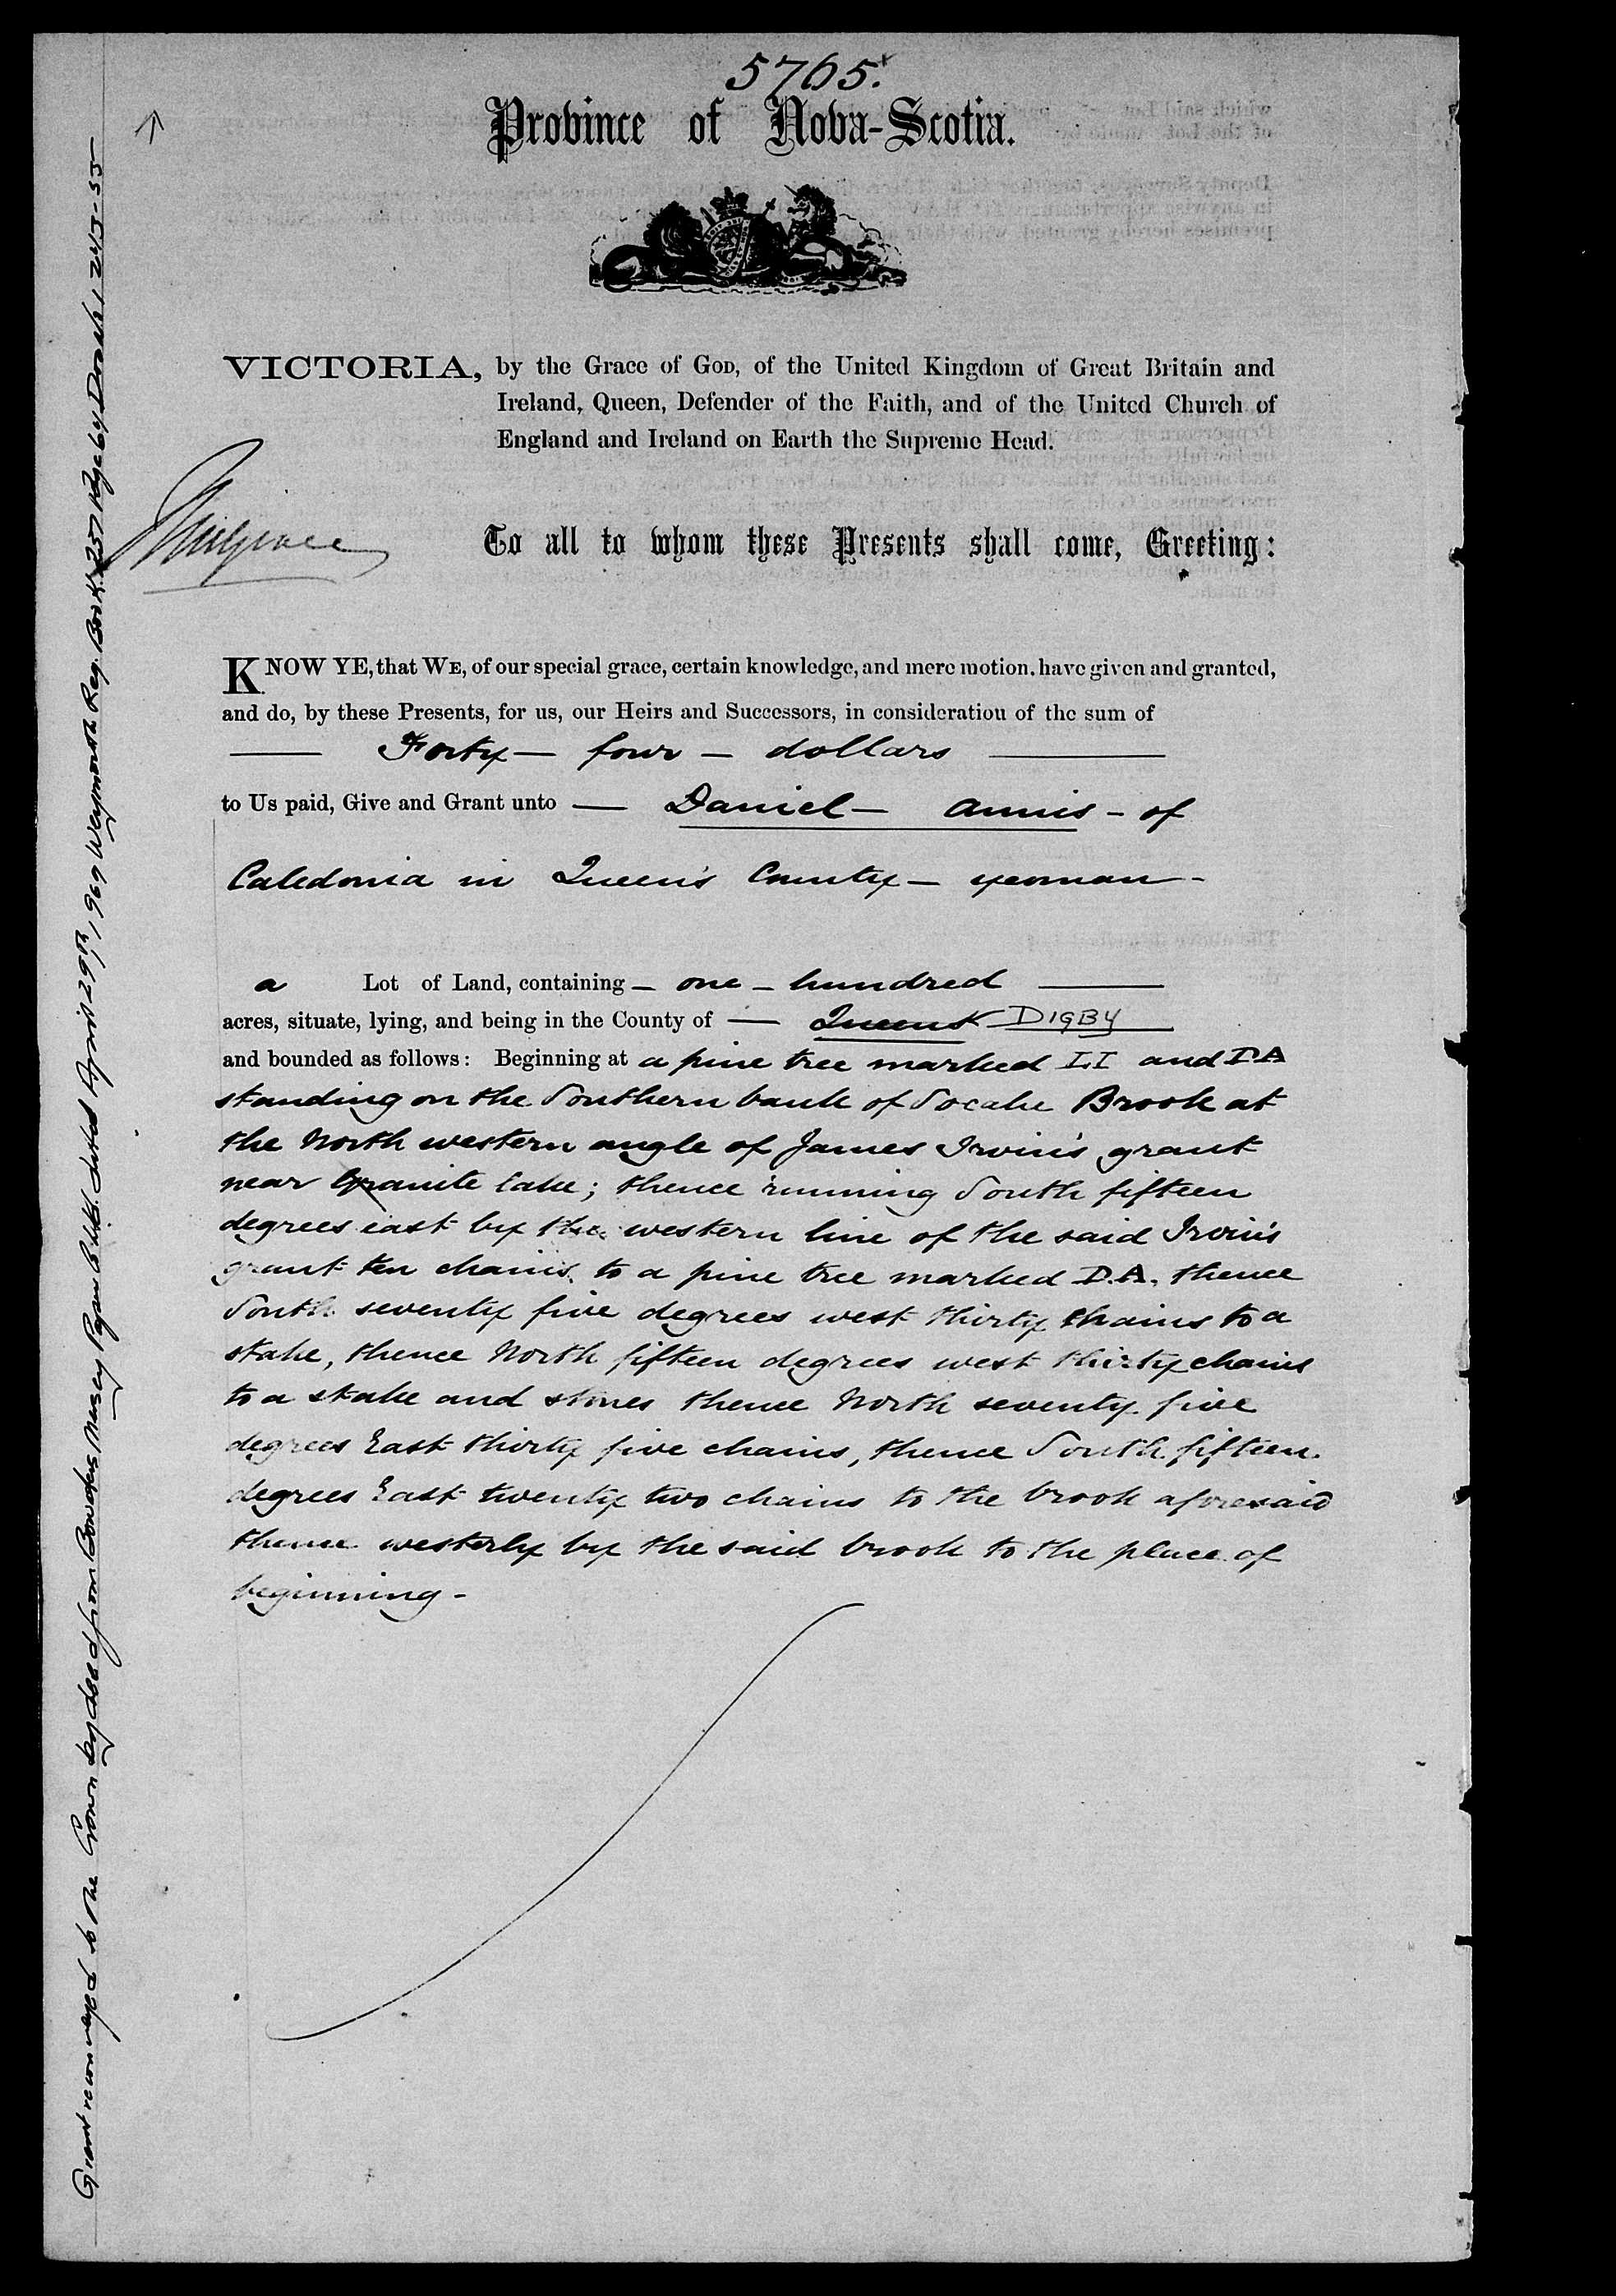 5765.
Province of Nova-Scotia.
VICTORIA, by the Grace of GOD, of the United Kingdom of Great Britain and
Ireland, Queen, Defender of the Faith, and of the United Church of
England and Ireland on Earth the Supreme Head.
Mulgrave
To all to whom these Presents shall come, Greeting:
KNOW YE, that WE, of our special grace, certain knowledge, and mere motion, have given and granted,
and do, by these Presents, for us, our Heirs and Successors, in consideration of the sum of
Forty - four - dollars
to Us paid, Give and Grant unto — Daniel - Annis - of
Caledonia in Queen's County - yeoman -
a Lot of Land, containing - one - hundred
acres, situate, lying, and being in the County of — Queens DIGBY
and bounded as follows: Beginning at a pine tree marked I.I and DA
standing on the Southern bank of Brook at
the North western angle of James Irvin's grant
near Granite Lake; thence running South fifteen
degrees east by the western line of the said Irvin's
grant ten chains to a pine tree marked D.A. thence
South seventy five degrees west thirty chains to a
stake, thence North fifteen degrees west thirty chains
to a stake and stones thence North seventy five
degrees East thirty five chains, thence South fifteen
degrees East twenty two chains to the brook aforesaid
thence westerly by the said brook to the place of
beginning -
Grant reconveyed to the Crown by deed from Bowaters Mersey Paper Co. Ltd. dated April 29th, 1969 Weymouth Reg. Book 257 Page 69